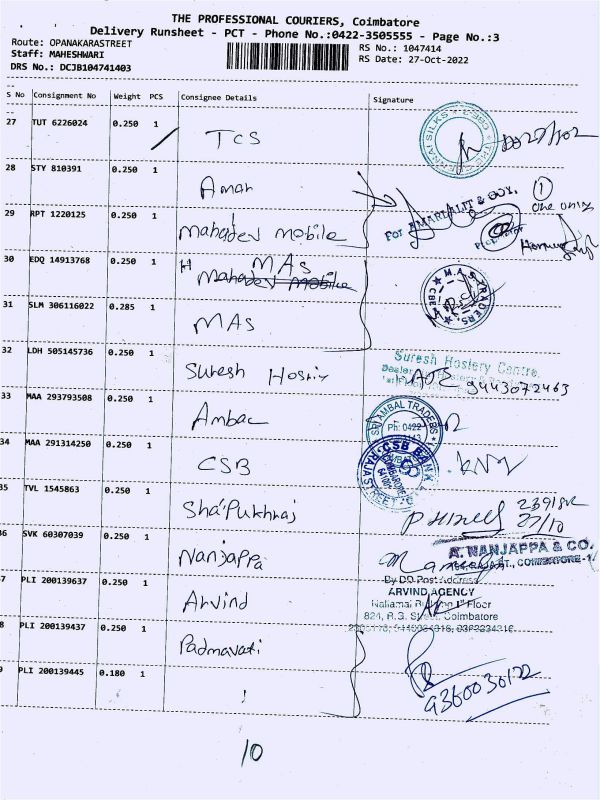 THE PROFESSIONAL COURIERS, Coimbatore
Delivery Runsheet - PCT - Phone No.:0422-3505555 - Page No.:3
Route: OPANAKARASTREET
Staff: MAHESHWARI
DRS No.: DCJB104741403
RS No.: 1047414
RS Date: 27-Oct-2022
S No Consignment No Weight PCS Consignee Details Signature
27 TUT 6226024 0.250 1 TCS
28 STY 810391 0.250 1 Aman
FOR AMARLALIT & BOY. 1
one only
29 RPT 1220125 0.250 1 Mahadev Mobile
Proprietor
30 EDQ 14913768 0.250 1 MAs
Mahadev Mobile
M.A.S. TRADERS CBE
31 SLM 306116022 0.285 1 MAS
32 LDH 505145736 0.250 1 Suresh Hosriy
Suresh Hosiery Centre.
9443072463
33 MAA 293793508 0.250 1 Ambac
SRI AMBAL TRADERS
Ph: 0422
34 MAA 291314250 0.250 1 CSB
CSB BANK
RAJA STREET
COIMBATORE
35 TVL 1545863 0.250 1 Sha'Pukhraj
27/10
36 SVK 60307039 0.250 1 Nanjappa
A. NANJAPPA & CO.
COIMBATORE-1
37 PLI 200139637 0.250 1 Arvind
By DD Post Address
ARVIND AGENCY
1st Floor
824, R.G. Street, Coimbatore
38 PLI 200139437 0.250 1 Padmavati
39 PLI 200139445 0.180 1
9360030122
10